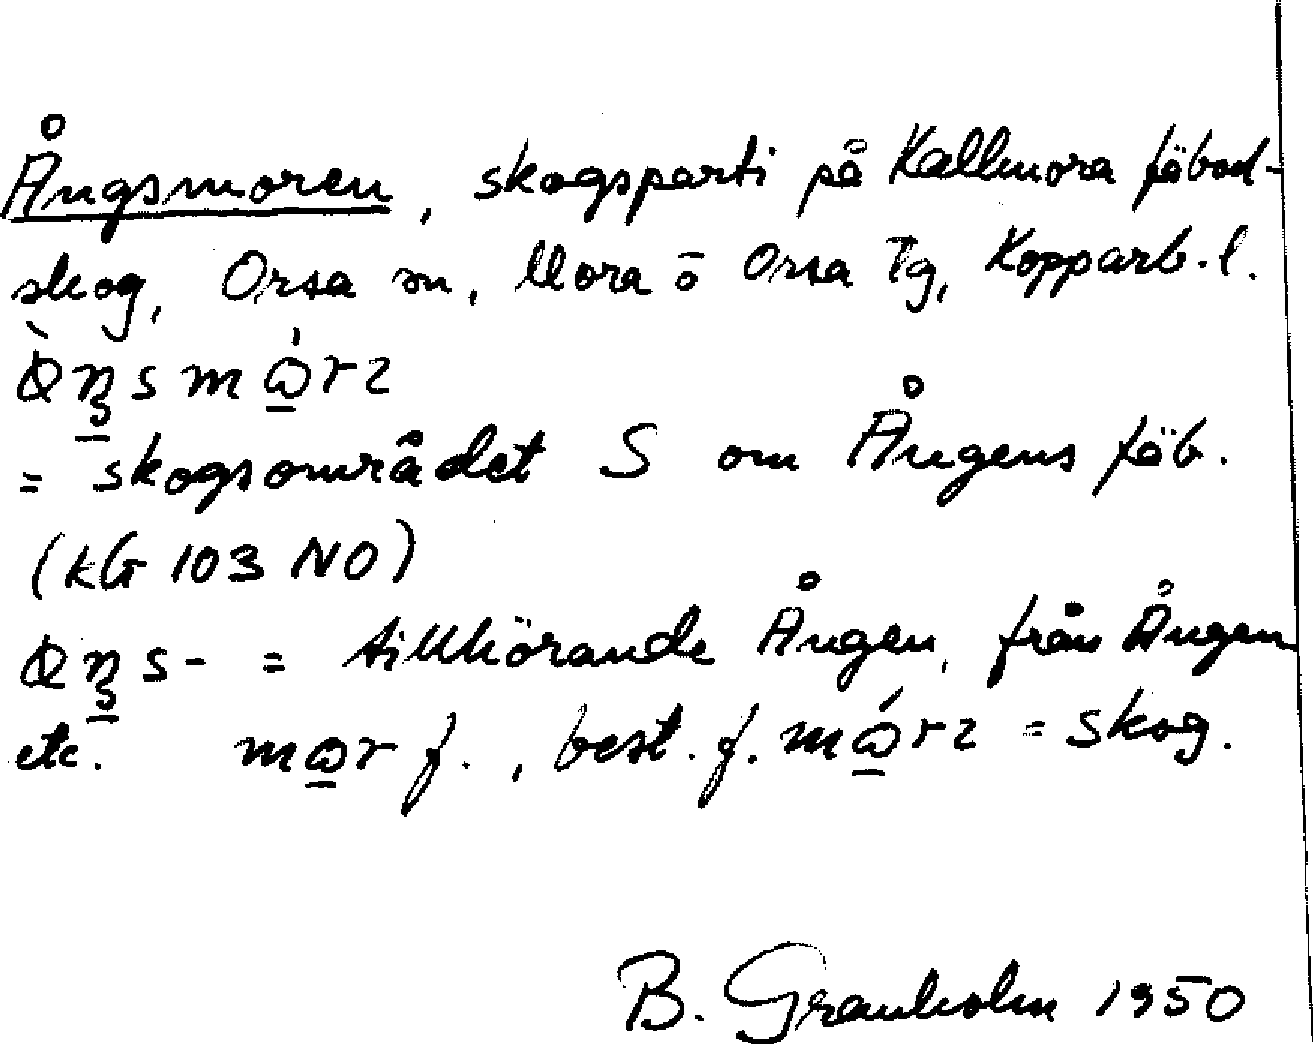 Ångsmoren, skogsparti på Kallmora fäbod-
skog, Orsa sn, Mora o Orsa Tg, Kopparb. l.
= skogsområdet S om Ångens fäb.
(kG 103 NO)
= tillhörande Ången, från Ången
etc. f., best. f. = skog.
B. Granholm 1950